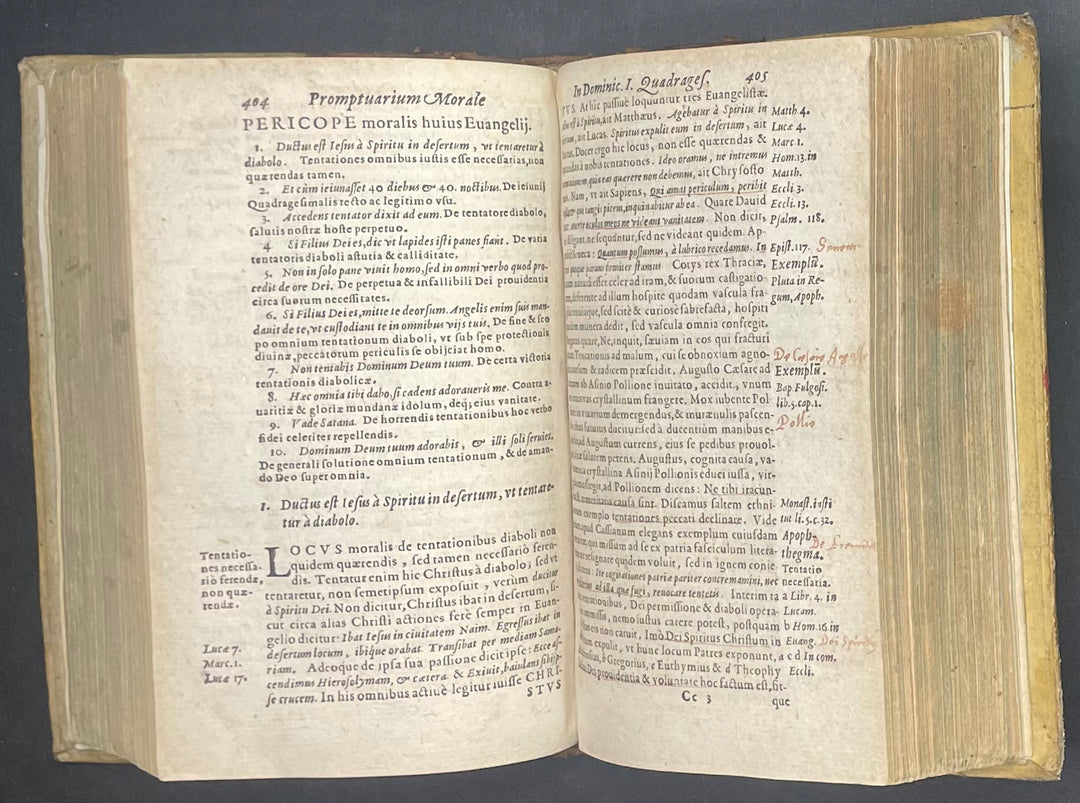 404 Promptuarium Morale
PERICOPE moralis huius Euangelij.
1. Ductus est Iesus à Spiritu in desertum, vt tentaretur à
diabolo. Tentationes omnibus iustis esse necessarias, non
quærendas tamen.
2. Et cùm ieiunasset 40 diebus & 40. noctibus. De ieiunij
Quadragesimalis recto ac legitimo vsu.
3. Accedens tentator dixit ad eum. De tentatore diabolo,
salutis nostræ hoste perpetuo.
4 Si Filius Dei es, dic vt lapides isti panes fiant. De varia
tentatoris diaboli astutia & calliditate.
5. Non in solo pane viuit homo, sed in omni verbo quod pro-
cedit de ore Dei. De perpetua & infallibili Dei prouidentia
circa suorum necessitates.
6. Si Filius Dei es, mitte te deorsum. Angelis enim suis man-
dauit de te, vt custodiant te in omnibus vijs tuis. De fine & sco
po omnium tentationum diaboli, vt sub spe protectionis
diuinæ, peccatorum periculis se obijciat homo.
7. Non tentabis Dominum Deum tuum. De certa victoria
tentationis diabolicæ.
8. Hæc omnia tibi dabo, si cadens adoraueris me. Contra a-
uaritiæ & gloriæ mundanæ idolum, deq; eius vanitate.
9. Vade Satana. De horrendis tentationibus hoc verbo
fidei celeriter repellendis.
10. Dominum Deum tuum adorabis, & illi soli seruies.
De generali solutione omnium tentationum, & de aman-
do Deo super omnia.
1. Ductus est Iesus à Spiritu in desertum, vt tentare-
tur à diabolo.
Tentatio-
nes necessa-
riò ferendæ,
non quæ-
rendæ.
LOCVS moralis de tentationibus diaboli non
quidem quærendis, sed tamen necessariò feren-
dis. Tentatur enim hic Christus à diabolo; sed vt
tentaretur, non semetipsum exposuit, verùm ducitur
à Spiritu Dei. Non dicitur, Christus ibat in desertum, si-
cut circa alias Christi actiones ferè semper in Euan-
gelio dicitur: Ibat Iesus in ciuitatem Naim. Egressus ibat in
desertum locum, ibique orabat. Transibat per mediam Sama-
riam. Adeoque de ipsa sua passione dicit ipse: Ecce as-
cendimus Hierosolymam, & cætera. & Exiuit, baiulans sibi ip-
se crucem. In his omnibus actiuè legitur iuisse CHRI-
STVS
Luca 7.
Marc. 1.
Luca 17.
In Dominic. I. Quadrages. 405
At hic passiuè loquuntur tres Euangelistæ.
ait Matthæus. Agebatur à Spiritu in
ait Lucas. Spiritus expulit eum in desertum, ait
Docet ergo hic locus, non esse quærendas &
à nobis tentationes. Ideo oramus, ne intremus
quia eas quærere non debemus, ait Chrysosto
Nam, vt ait Sapiens, Qui amat periculum, peribit
qui tangit picem, inquinabitur ab ea. Quare Dauid
oculos meos ne videant vanitatem. Non dicit,
ne sequantur, sed ne videant quidem. Ap-
Seneca: Quantum possumus, à lubrico recedamus. In
parum firmiter stamus Cotys rex Thraciæ,
esset celer ad iram, & suorum castigatio
deferente ad illum hospite quodam vascula fra-
sed scitè & curiosè fabrefacta, hospiti
munera dedit, sed vascula omnia confregit.
quare, Ne, inquit, sæuiam in eos qui fracturi
Tentationis ad malum, cui se obnoxium agno-
& radicem præscidit. Augusto Cæsare ad
ab Asinio Pollione inuitato, accidit, vnum
crystallinum frangere. Mox iubente Pol
viuarium demergendus, & murænulis pascen-
ducitur: sed à ducentium manibus e-
ad Augustum currens, eius se pedibus prouol-
salutem petens. Augustus, cognita causa, va-
crystallina Asinij Pollionis educi iussa, vir-
ad Pollionem dicens: Ne tibi iracun-
causa sint. Discamus saltem ethni-
exemplo tentationes peccati declinare. Vide
apud Cassianum elegans exemplum cuiusdam
qui missum ad se ex patria fasciculum litera-
resignare quidem voluit, sed in ignem conie-
Ite cogitationes patriæ pariter concremamini, nec
ad illa quæ fugi, reuocare tentetis. Interim ta
Dei permissione & diaboli opera-
nemo iustus carere potest, postquam b
non caruit, Imò Dei Spiritus Christum in
expulit, vt hunc locum Patres exponunt, a c d
b Gregorius, c Euthymius & d Theophy
Dei prouidentia & voluntate hoc factum est, sit-
Cc 3 que
Matth. 4.
Lucæ 4.
Marc. 1.
Hom. 13. in
Matth.
Eccli. 3.
Eccli. 13.
Psalm. 118.
Epist. 117.
Exemplū.
Pluta in Re-
gum, Apoph.
Exemplū.
Bap. Fulgos.
lib. 5. cap. 1.
Pollio
Monast. insti
tut li. 5. c. 32.
Apoph-
thegma.
Tentatio
necessaria.
Libr. 4. in
Lucam.
Hom. 16. in
Euang.
In com.
Eccli.